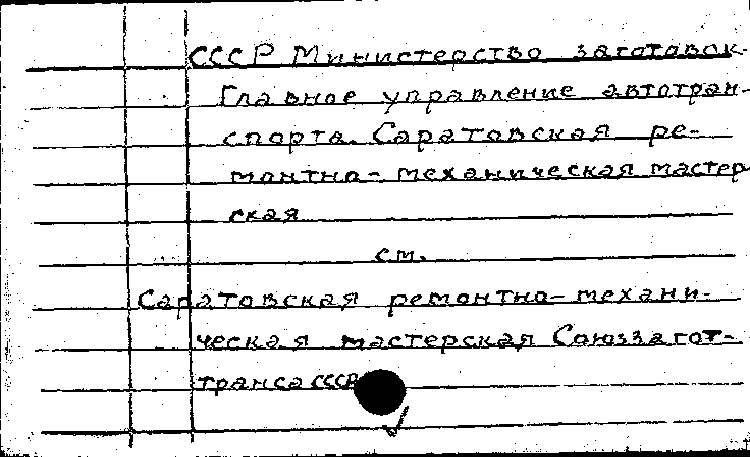 СССР Министерство заготовок.
Главное управление автотран-
спорта. Саратовская ре-
монтно-механическая мастер
ская
см.
Саратовская ремонтно-механи-
ческая мастерская Союззагот-
транса СССР